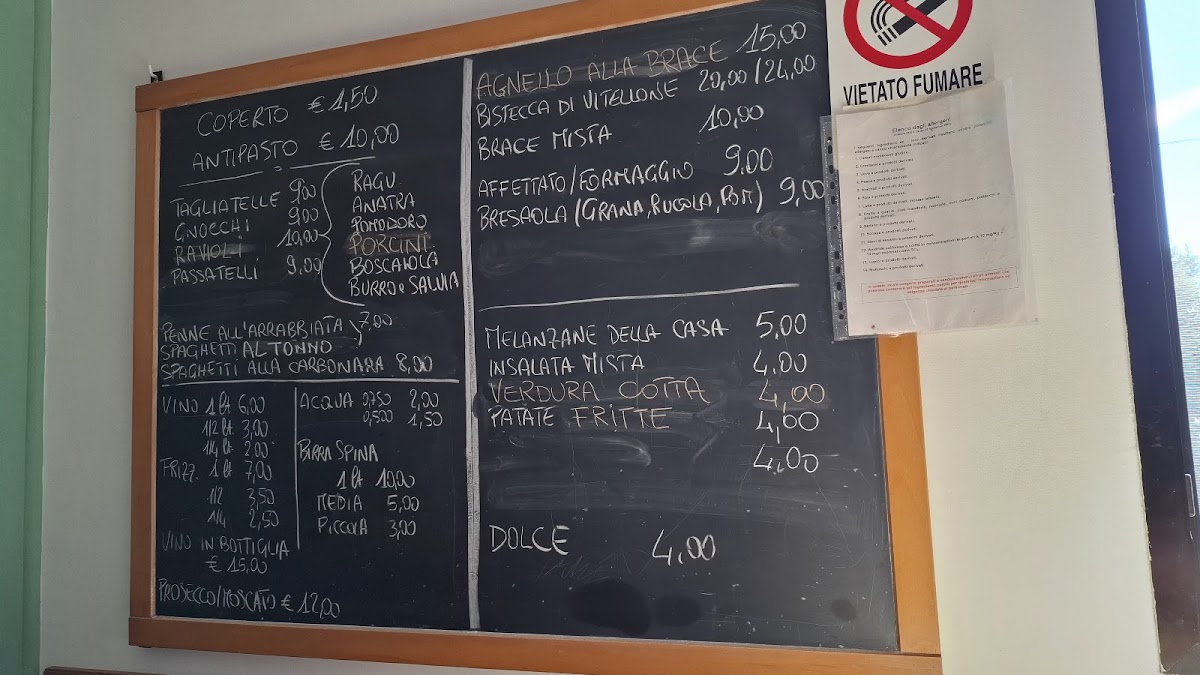 COPERTO € 1,50
ANTIPASTO € 10,00
TAGLIATELLE 9,00
GNOCCHI 9,00
RAVIOLI 10,00
PASSATELLI 9,00
RAGU
ANATRA
POMODORO
PORCINI
BOSCAIOLA
BURRO e SALVIA
PENNE ALL'ARRABBIATA 7,00
SPAGHETTI AL TONNO
SPAGHETTI ALLA CARBONARA 8,00
VINO 1 lt 6,00
1/2 lt. 3,00
1/4 lt. 2,00
FRIZZ. 1 lt 7,00
1/2 3,50
1/4 2,50
VINO IN BOTTIGLIA
€ 15,00
PROSECCO/MOSCATO € 12,00
ACQUA 0,750 2,00
0,500 1,50
BIRRA SPINA
1 lt 10,00
MEDIA 5,00
PICCOLA 3,00
AGNELLO ALLA BRACE 15,00
BISTECCA DI VITELLONE 20,00/24,00
BRACE MISTA 10,00
AFFETTATO/FORMAGGIO 9,00
BRESAOLA (GRANA, RUCOLA, POM) 9,00
MELANZANE DELLA CASA 5,00
INSALATA MISTA 4,00
VERDURA COTTA 4,00
PATATE FRITTE 4,00
4,00
DOLCE 4,00
VIETATO FUMARE
Elenco degli allergeni